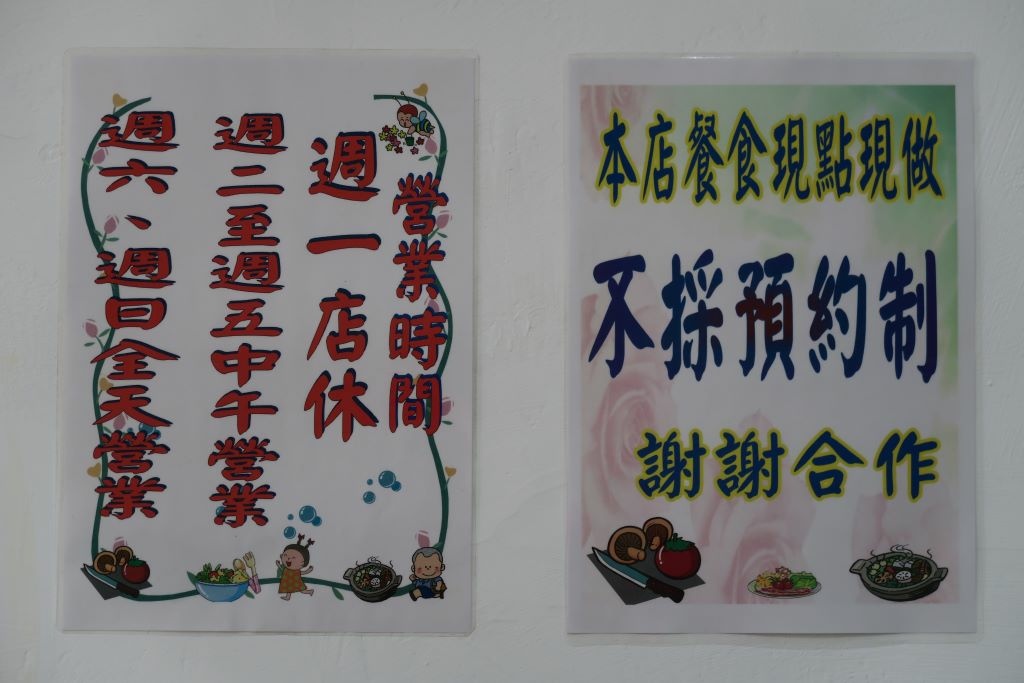 營業時間
週一店休
週二至週五中午營業
週六、週日全天營業
本店餐食現點現做
不採預約制
謝謝合作